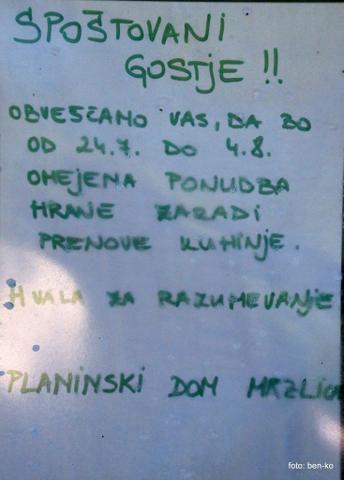 SPOŠTOVANI
GOSTJE !!
OBVEŠČAMO VAS, DA BO
OD 24.7. DO 4.8.
OMEJENA PONUDBA
HRANE ZARADI
PRENOVE KUHINJE.
HVALA ZA RAZUMEVANJE
PLANINSKI DOM MRZLICA
foto: ben-ko